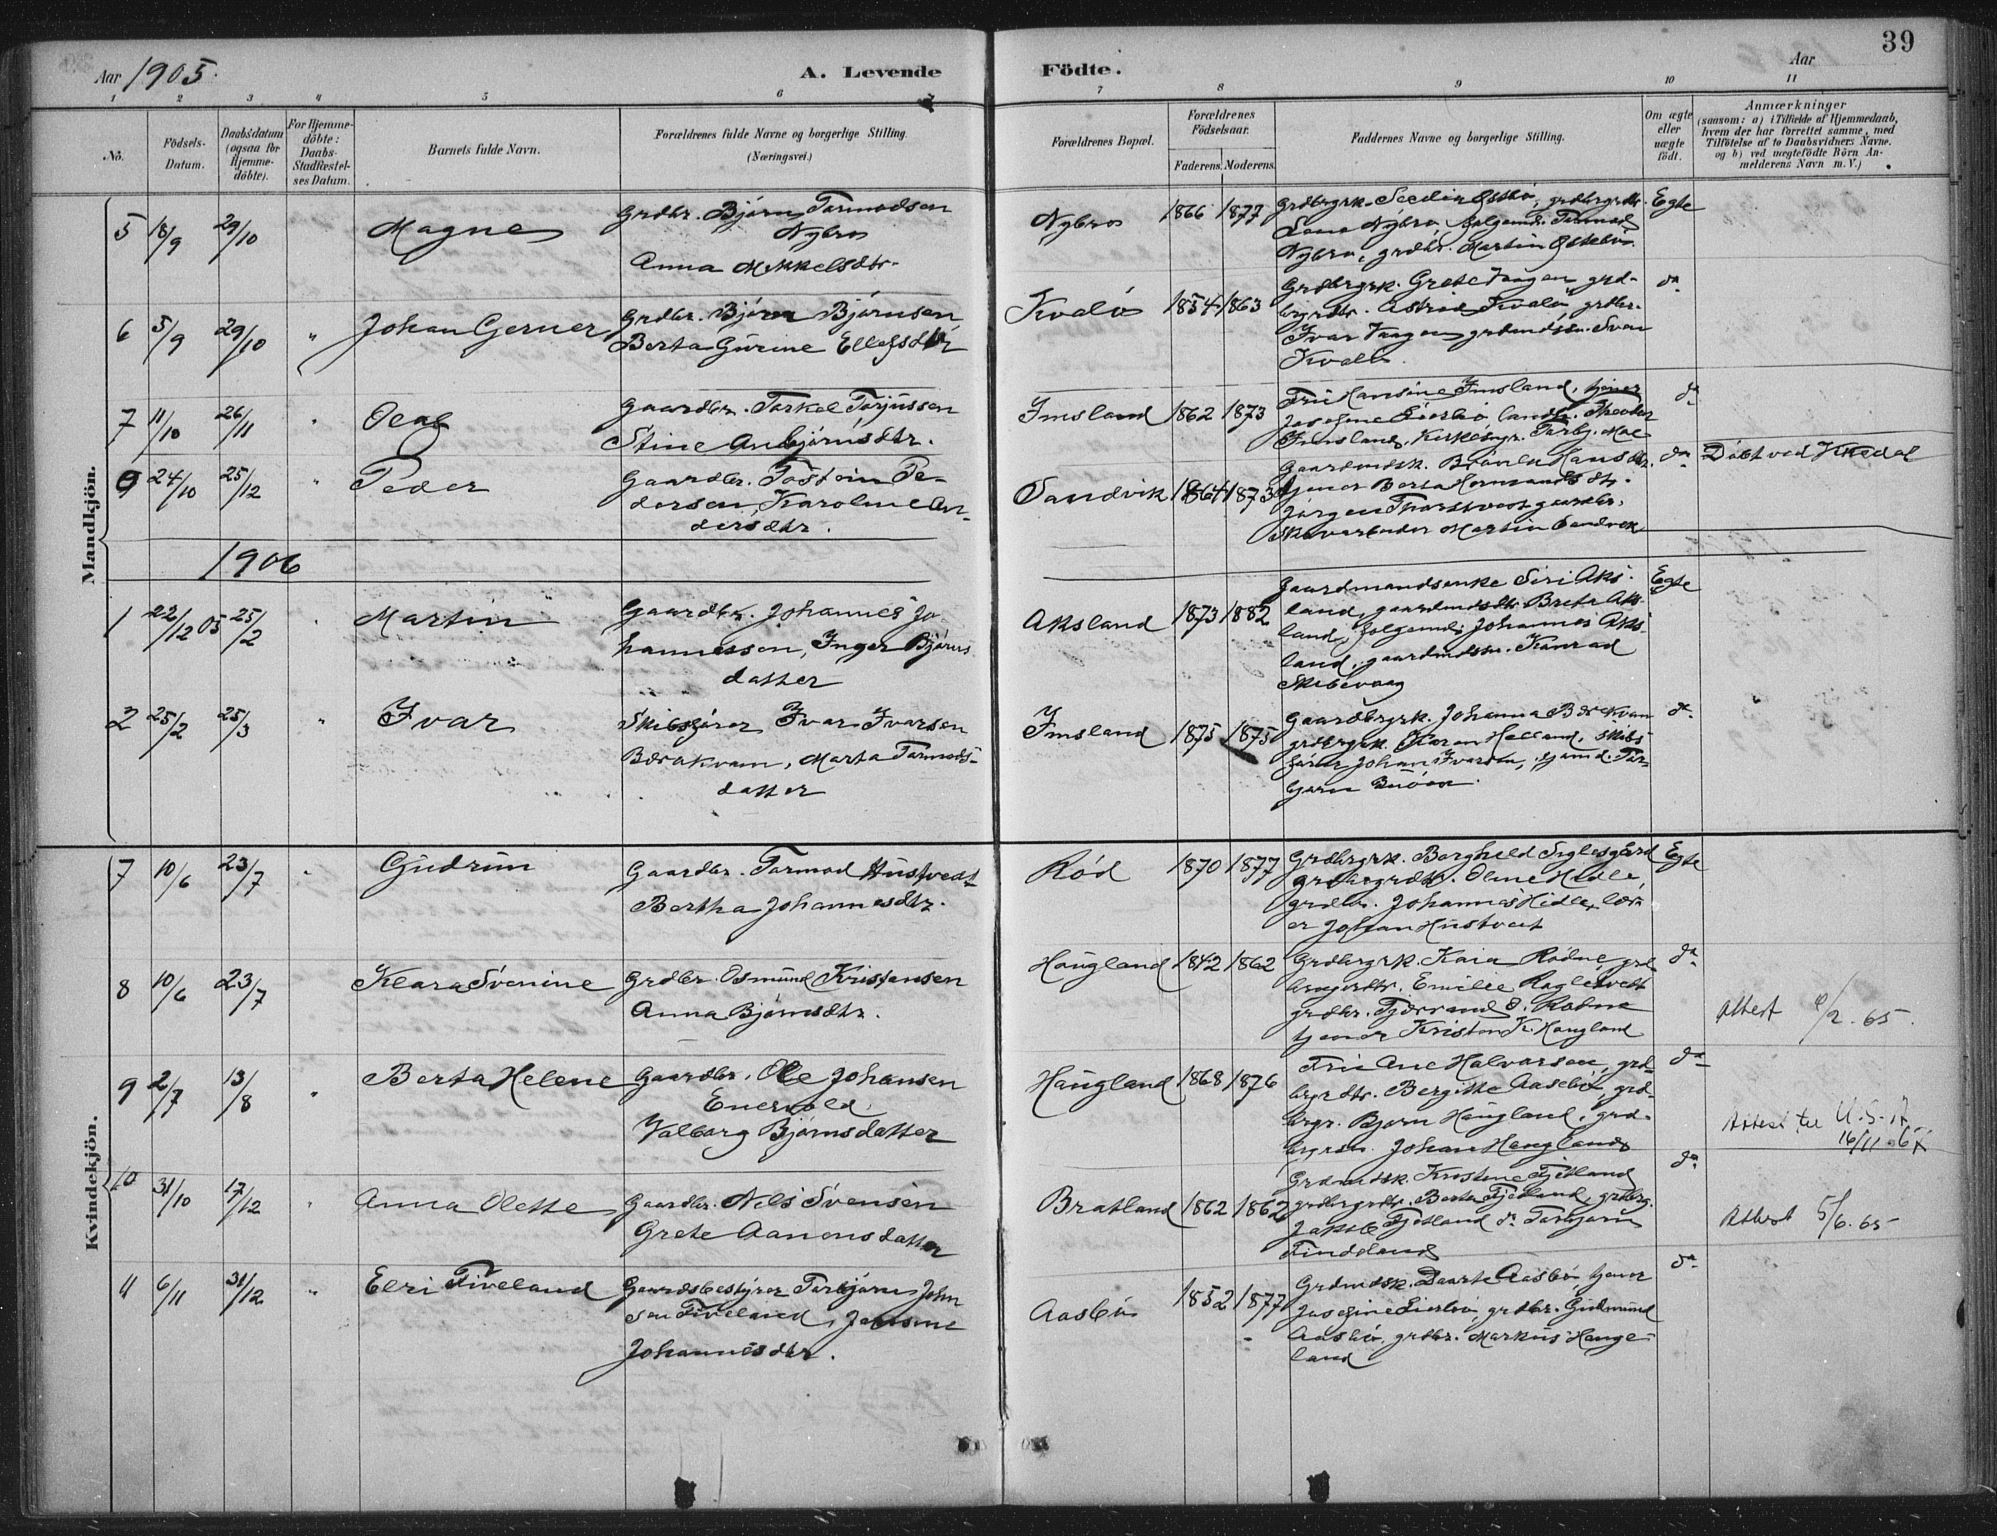 39
Aar 1905.
A. Levende Födte.
Aar
1 2 3 4 5 6 7 8 9 10 11
No.
Födsels-Datum.
Daabsdatum (ogsaa for Hjemme-döbte).
For Hjemme-döbte: Daabs-Stadfæstelses Datum.
Barnets fulde Navn.
Forældrenes fulde Navne og borgerlige Stilling. (Næringsvei.)
Forældrenes Bopæl.
Forældrenes Födselsaar.
Faderens. Moderens.
Faddernes Navne og borgerlige Stilling.
Om ægte eller uægte födt.
Anmærkninger
(saasom: a) i Tilfælde af Hjemmedaab, hvem der har forrettet samme, med Tilföielse af to Daabsvidners Navne. og b) ved uægtefödte Börn Anmelderens Navn m. V.)
Mandkjön.
5 18/9 29/10 Magne
Grdbr. Bjørn Tormodsen
Nybro
Anna Mikkelsdtr.
Nybro 1866 1877
Lana Nybro, Tormod
Nybro, grdbr. Martin Østebø.
Egte
6 5/9 29/10 " Johan Gerner
Grdbr. Bjørn Bjørnsen
Berta Gurine Ellefsdtr
Kvalø 1854 1863
Grdbrgrk. Grete Vaagen, grd-
brgrdtr. Astrid Kvalø, grdbr.
Ivar Vaagen grdmdsn. Sven
Kvalø.
do
7 11/10 26/11 " Olaf
Gaardbr. Torkel Torjussen
Stine Anbjørnsdtr.
Imsland 1862 1873
Fru Hansine Imsland, tjener
Josefine Lierbø landh. Theodor
Imsland, Kirkesngr. Torbj. Moe
do
9 24/10 25/12 " Peder
Gaardbr. Tostein Pe-
dersen, Karoline An-
dersdtr.
Sandvik 1864 1873
Gaardmdsk. Hansdtr.
tjener Berta Hermansdtr.
Jørgen gaardbr.
Martin Sandvik
do Døbt ved
1906
1 22/12 05 25/2 " Martin
Gaardbr. Johannes Jo
hannessen, Inger Bjørns
datter
Aksland 1873 1882
Gaardmandsenke Siri Aks-
land, gaardmdsdtr. Brita Aks-
land, Johannes Aks-
land, gaardmdsn. Konrad
Skibevaag
Egte
2 25/2 25/3 " Ivar
Skibsfører Ivar Ivarsen
Brækvam, Marta Tormods-
datter
Imsland 1875 1875
Gaardbrgrk. Johanna Brækvam
grdbrgrk. Karen Helland, skibs-
fører Johan Ivarsen, Tor-
Buøen.
do
Kvindekjön.
7 10/6 23/7 " Gudrun
Gaardbr. Tormod Hustvedt
Bertha Johannesdtr.
Rød 1870 1877
Grdbrgrk. Borghild
grdbrgrdtr. Oline Hidle
grdbr. Johannes Hidle, lær-
er Johan Hustveit
Egte
8 10/6 23/7 Klara Svenine
Grdbr. Osmund Kristensen
Anna Bjørnsdtr.
Haugland 1842 1862
Grdbrgrk. Kaia Rødne, grd
brgrdtr. Emilie
grdbr. O. Rødne
tjener Kristen K. Haugland
do Attest /2. 65.
9 2/7 13/8 " Berta Helene
Gaardbr. Ole Johansen
Enervold
Valborg Bjørnsdatter
Haugland 1868 1876
Fru Ane Halvorsen, grd-
brgrdtr. Bergitte Aasebø, grd-
brgr. Bjørn Haugland, grd-
brgrsn. Johan Haugland
do Attest til U.S.A.
16/11
10 31/10 17/12 " Anna Olette
Gaardbr. Nils Svensen
Grete Aanonsdatter
Bratland 1862 1862
Grdmdsk. Kristine Fjetland
grdbrgrdtr. Berta Fjetland, grdbrg.
Jakob Fjetland do Torbjørn
Tindeland
do Attest 5/6. 65
11 6/11 31/12 " Elri Tiveland
Gaardsbestyrer Torbjørn John
sen Tiveland,
Johannesdtr.
Aasbø 1852 1877
Grdmdsk. Daarte Aasbø tjener
Josefine Lierbø, grdbr. Gudmund
Aasbø, grdbr. Markus Hauge-
land
do